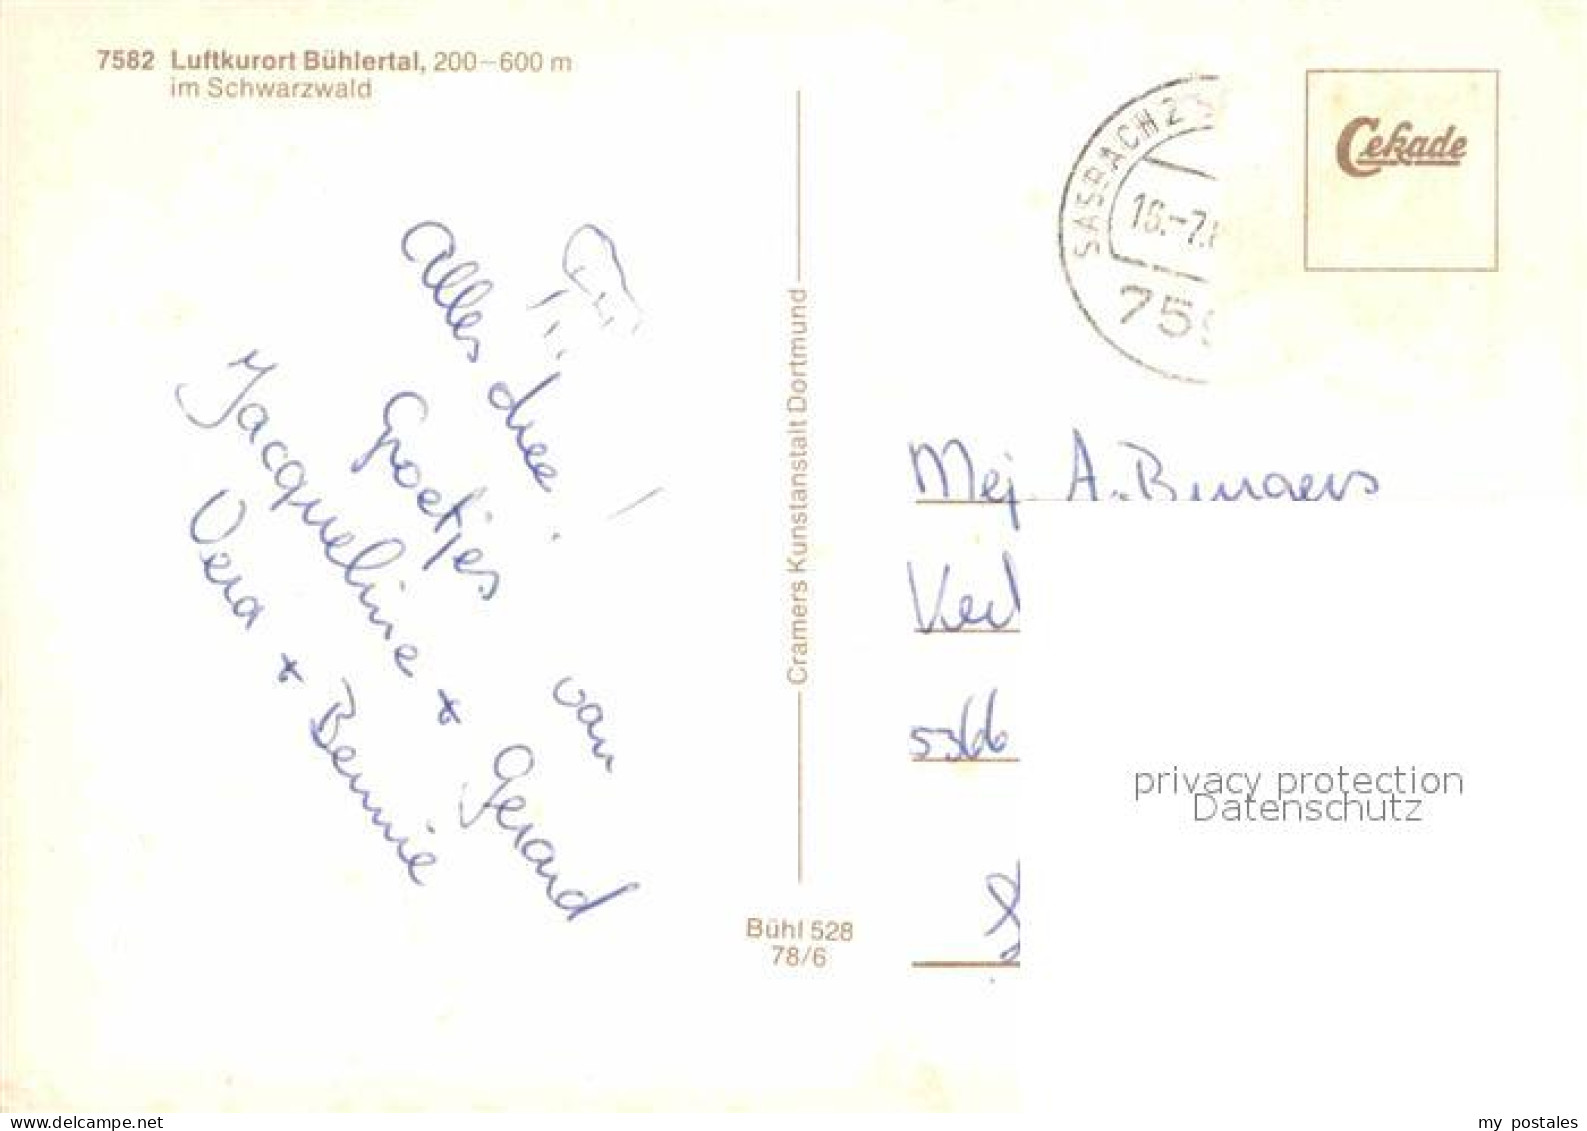 7582 Luftkurort Bühlertal, 200–600 m
im Schwarzwald
Cekade
SASBACH 2
16.-7.
75
Alles
Groetjes van
Jacqueline + Gerard
Vera + Bennie
Cramers Kunstanstalt Dortmund
Bühl 528
78/6
Mej. A.
5366
privacy protection
Datenschutz
www.delcampe.net
my_postales